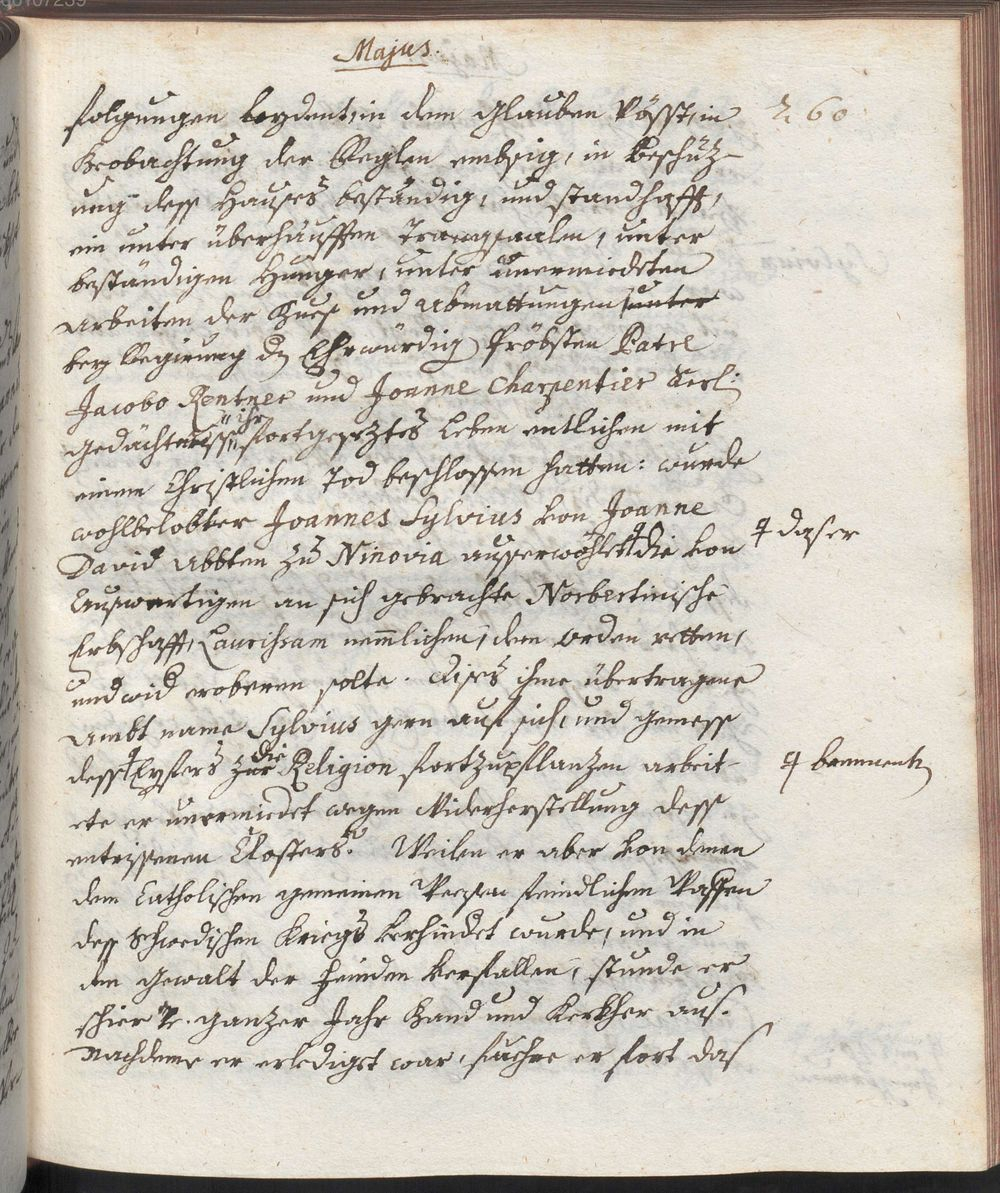 Majus.
260
folgungen leydent, in dem Glauben vösst, in
Beobachtung der Reglen embsig, in beschüz-
ung dess Hauses beständig, und standhafft,
ein unter überhäufften Trangsaalen, unter
beständigen Hunger, unter unermiedeten
Arbeiten der Buess und Abmattungen unter
Regirung Ehrwürdig Pröbsten Patre
Jacobo Rentner und Joanne Charpentier
gedächtnuss ihr fortgeseztes Leben entlichen mit
einem Christlichen Tod beschlossen hatten: wurde
wohlbelobter Joannes Sylvius von Joanne
David Abbten zu Ninovia ausserwöhlet ┼ die von
┼ das er
Auswertigen an sich gebrachte Norbertinische
Erbschafft, Laurihsam nem̄lichen, dem Orden retten,
und wid eroberen solte. Dises ihme übertragene
Ambt name Sylvius gern auf sich, und gemess
dess ┼ Eyfers die Religion fortzupflanzen arbeit-
┼ brennenten
ete er unermiedet wegen Widerherstellung dess
entrissenen Closters. Weilen er aber von denen
dem Catholischen gemeinen Weesen feindlichen Waffen
dess Schwedischen Kriegs verhindet wurde, und in
den Gewalt der Feinden verfallen, stunde er
schier 2. ganzer Jahr Band und Kerkher aus.
Nachdeme er erledigt war, fuehre er fort das